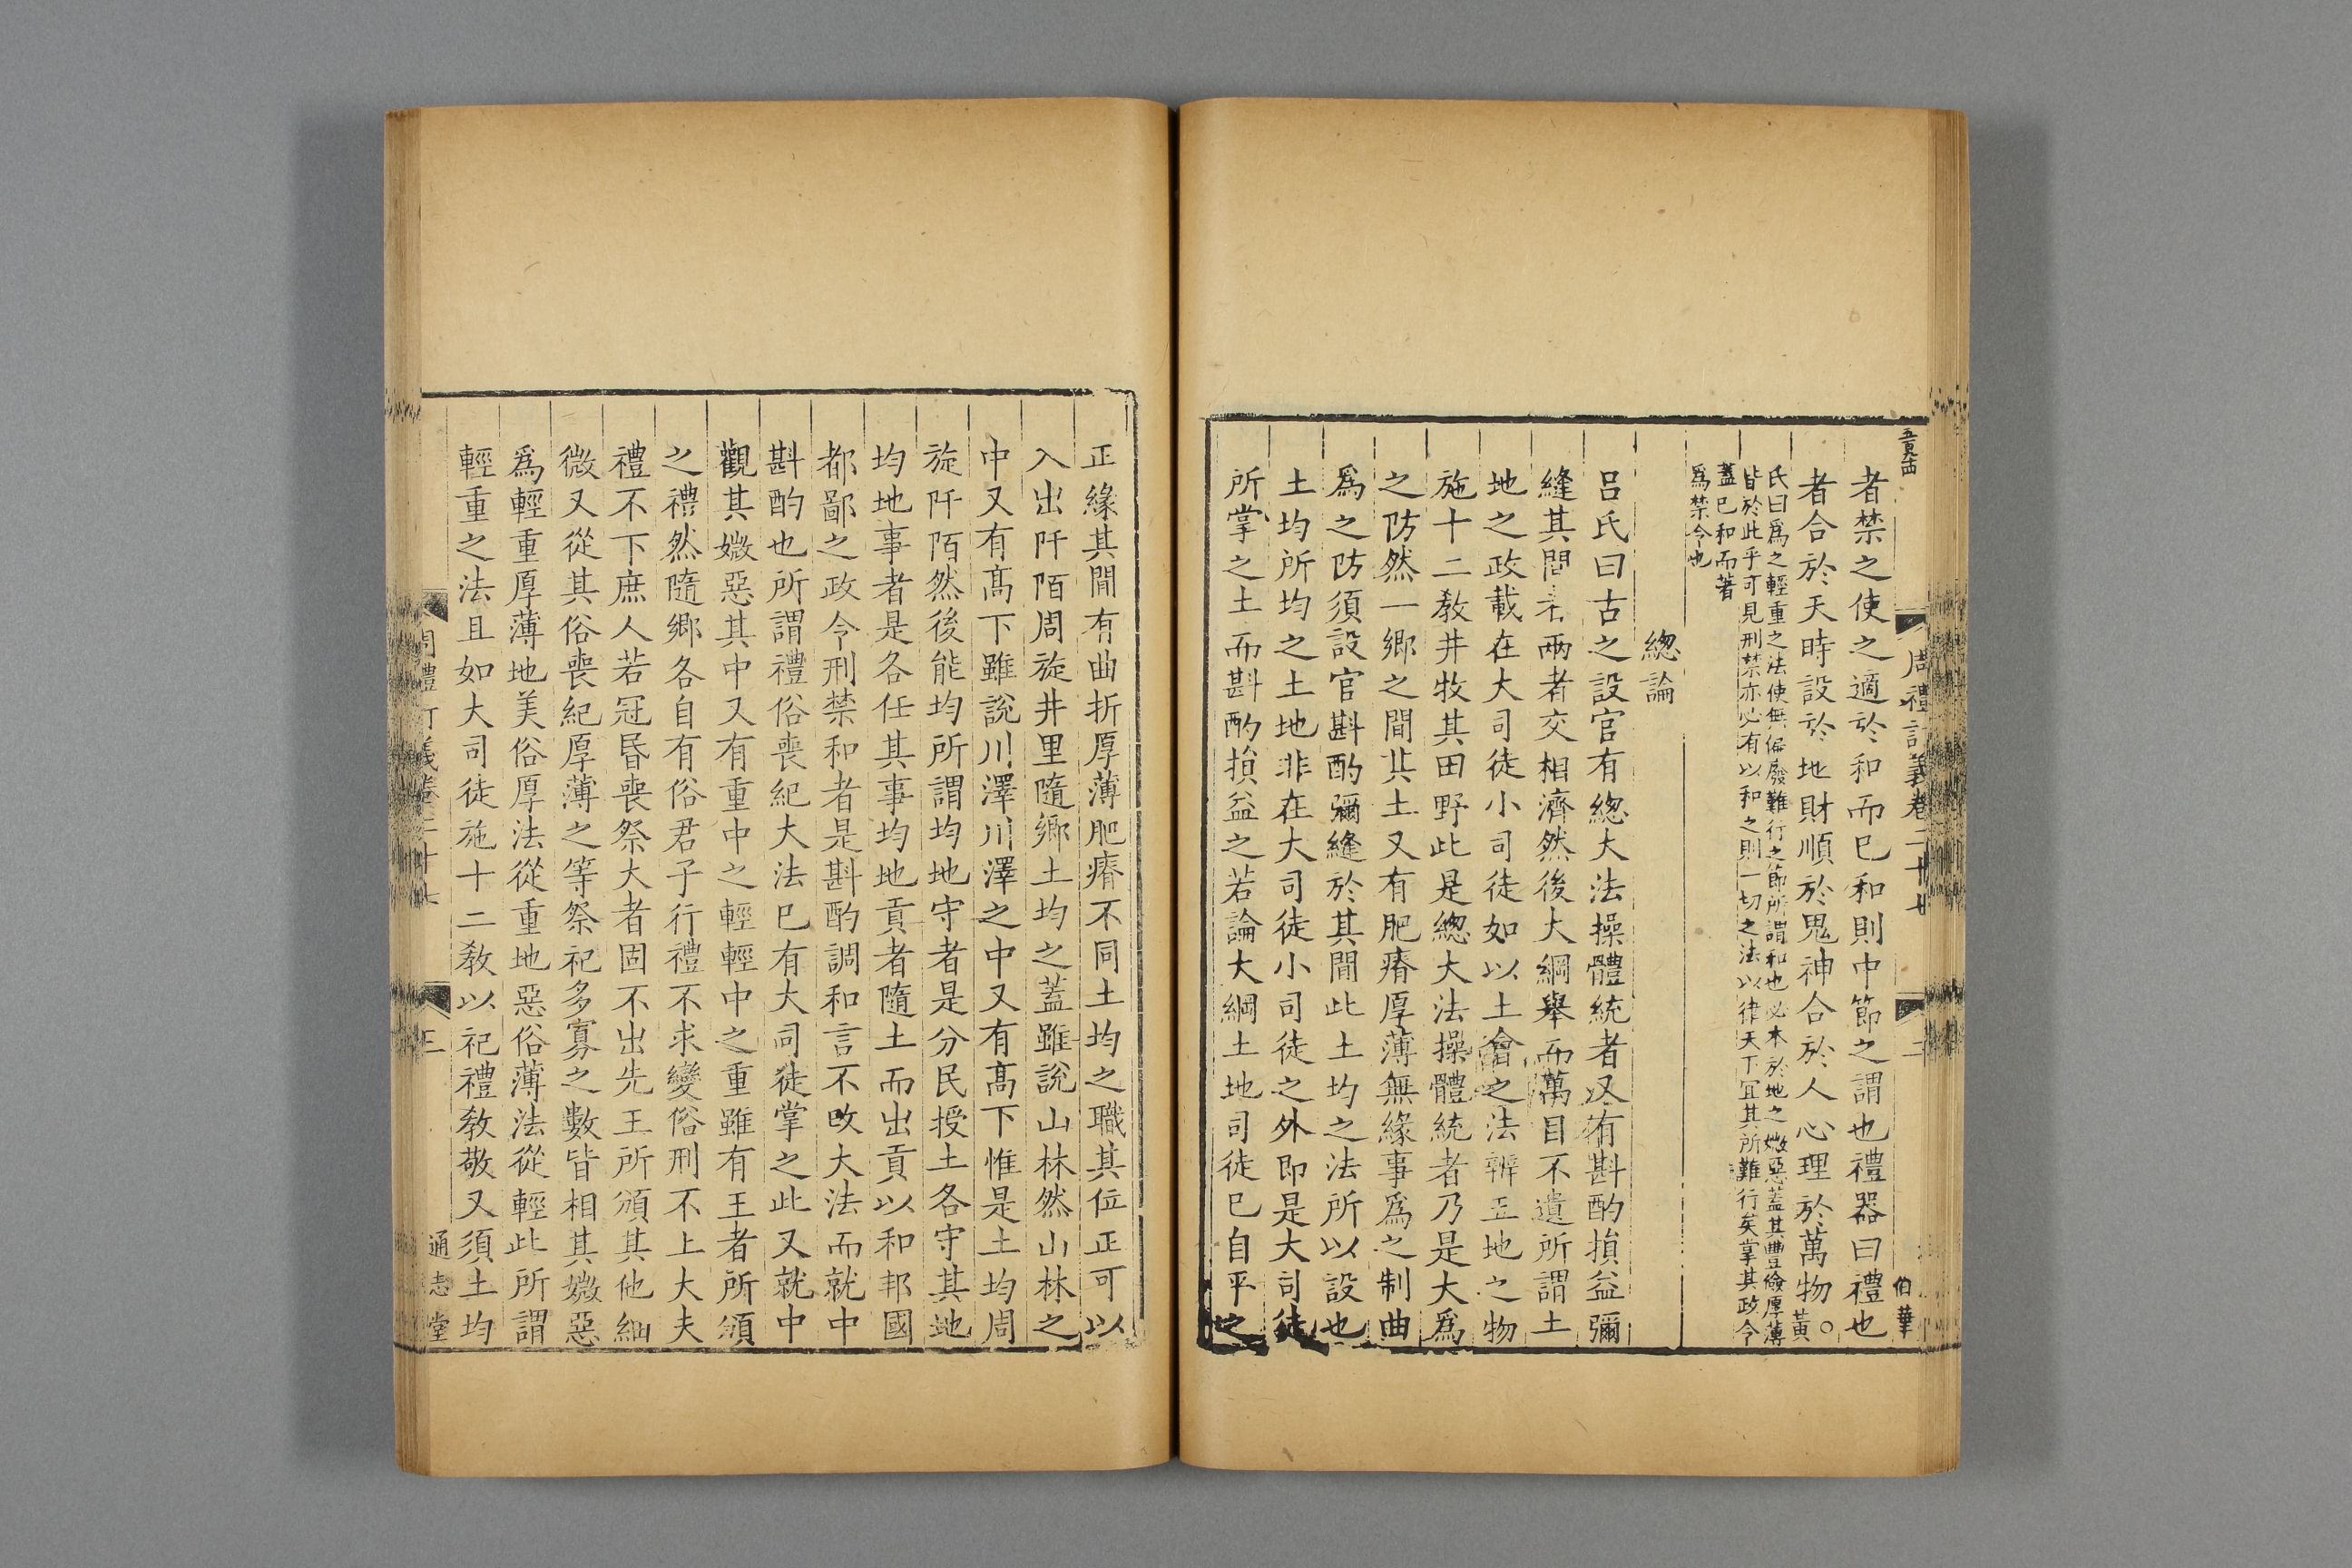 周禮訂義卷二十七
二
伯華
者禁之使之適於和而已和則中節之謂也禮器曰禮也
者合於天時設於地財順於鬼神合於人心理於萬物○黃
氏曰爲之輕重之法使無偏廢難行之節所謂和也必本於地之媺惡蓋其豐儉厚薄
皆於此乎可見刑禁亦必有以和之則一切之法以律天下宜其所難行矣掌其政令
蓋已和而著
爲禁令也
總論
呂氏曰古之設官有總大法操體統者又有斟酌損益彌
縫其間者兩者交相濟然後大綱舉而萬目不遺所謂土
地之政載在大司徒小司徒如以土會之法辨五地之物
施十二敎井牧其田野此是總大法操體統者乃是大爲
之防然一鄉之間其土又有肥瘠厚薄無緣事爲之制曲
爲之防須設官斟酌彌縫於其間此土均之法所以設也
土均所均之土地非在大司徒小司徒之外即是大司徒
所掌之土而斟酌損益之若論大綱土地司徒已自平之
正緣其間有曲折厚薄肥瘠不同土均之職其位正可以
入出阡陌周旋井里隨鄉土均之蓋雖說山林然山林之
中又有高下雖說川澤川澤之中又有高下惟是土均周
旋阡陌然後能均所謂均地守者是分民授土各守其地
均地事者是各任其事均地貢者隨土而出貢以和邦國
都鄙之政令刑禁和者是斟酌調和言不改大法而就中
斟酌也所謂禮俗喪紀大法已有大司徒掌之此又就中
觀其媺惡其中又有重中之輕輕中之重雖有王者所頒
之禮然隨鄉各自有俗君子行禮不求變俗刑不上大夫
禮不下庶人若冠昏喪祭大者固不出先王所頒其他細
微又從其俗喪紀厚薄之等祭祀多寡之數皆相其媺惡
爲輕重厚薄地美俗厚法從重地惡俗薄法從輕此所謂
輕重之法且如大司徒施十二敎以祀禮敎敬又須土均
周禮訂義卷二十七
三
通志堂